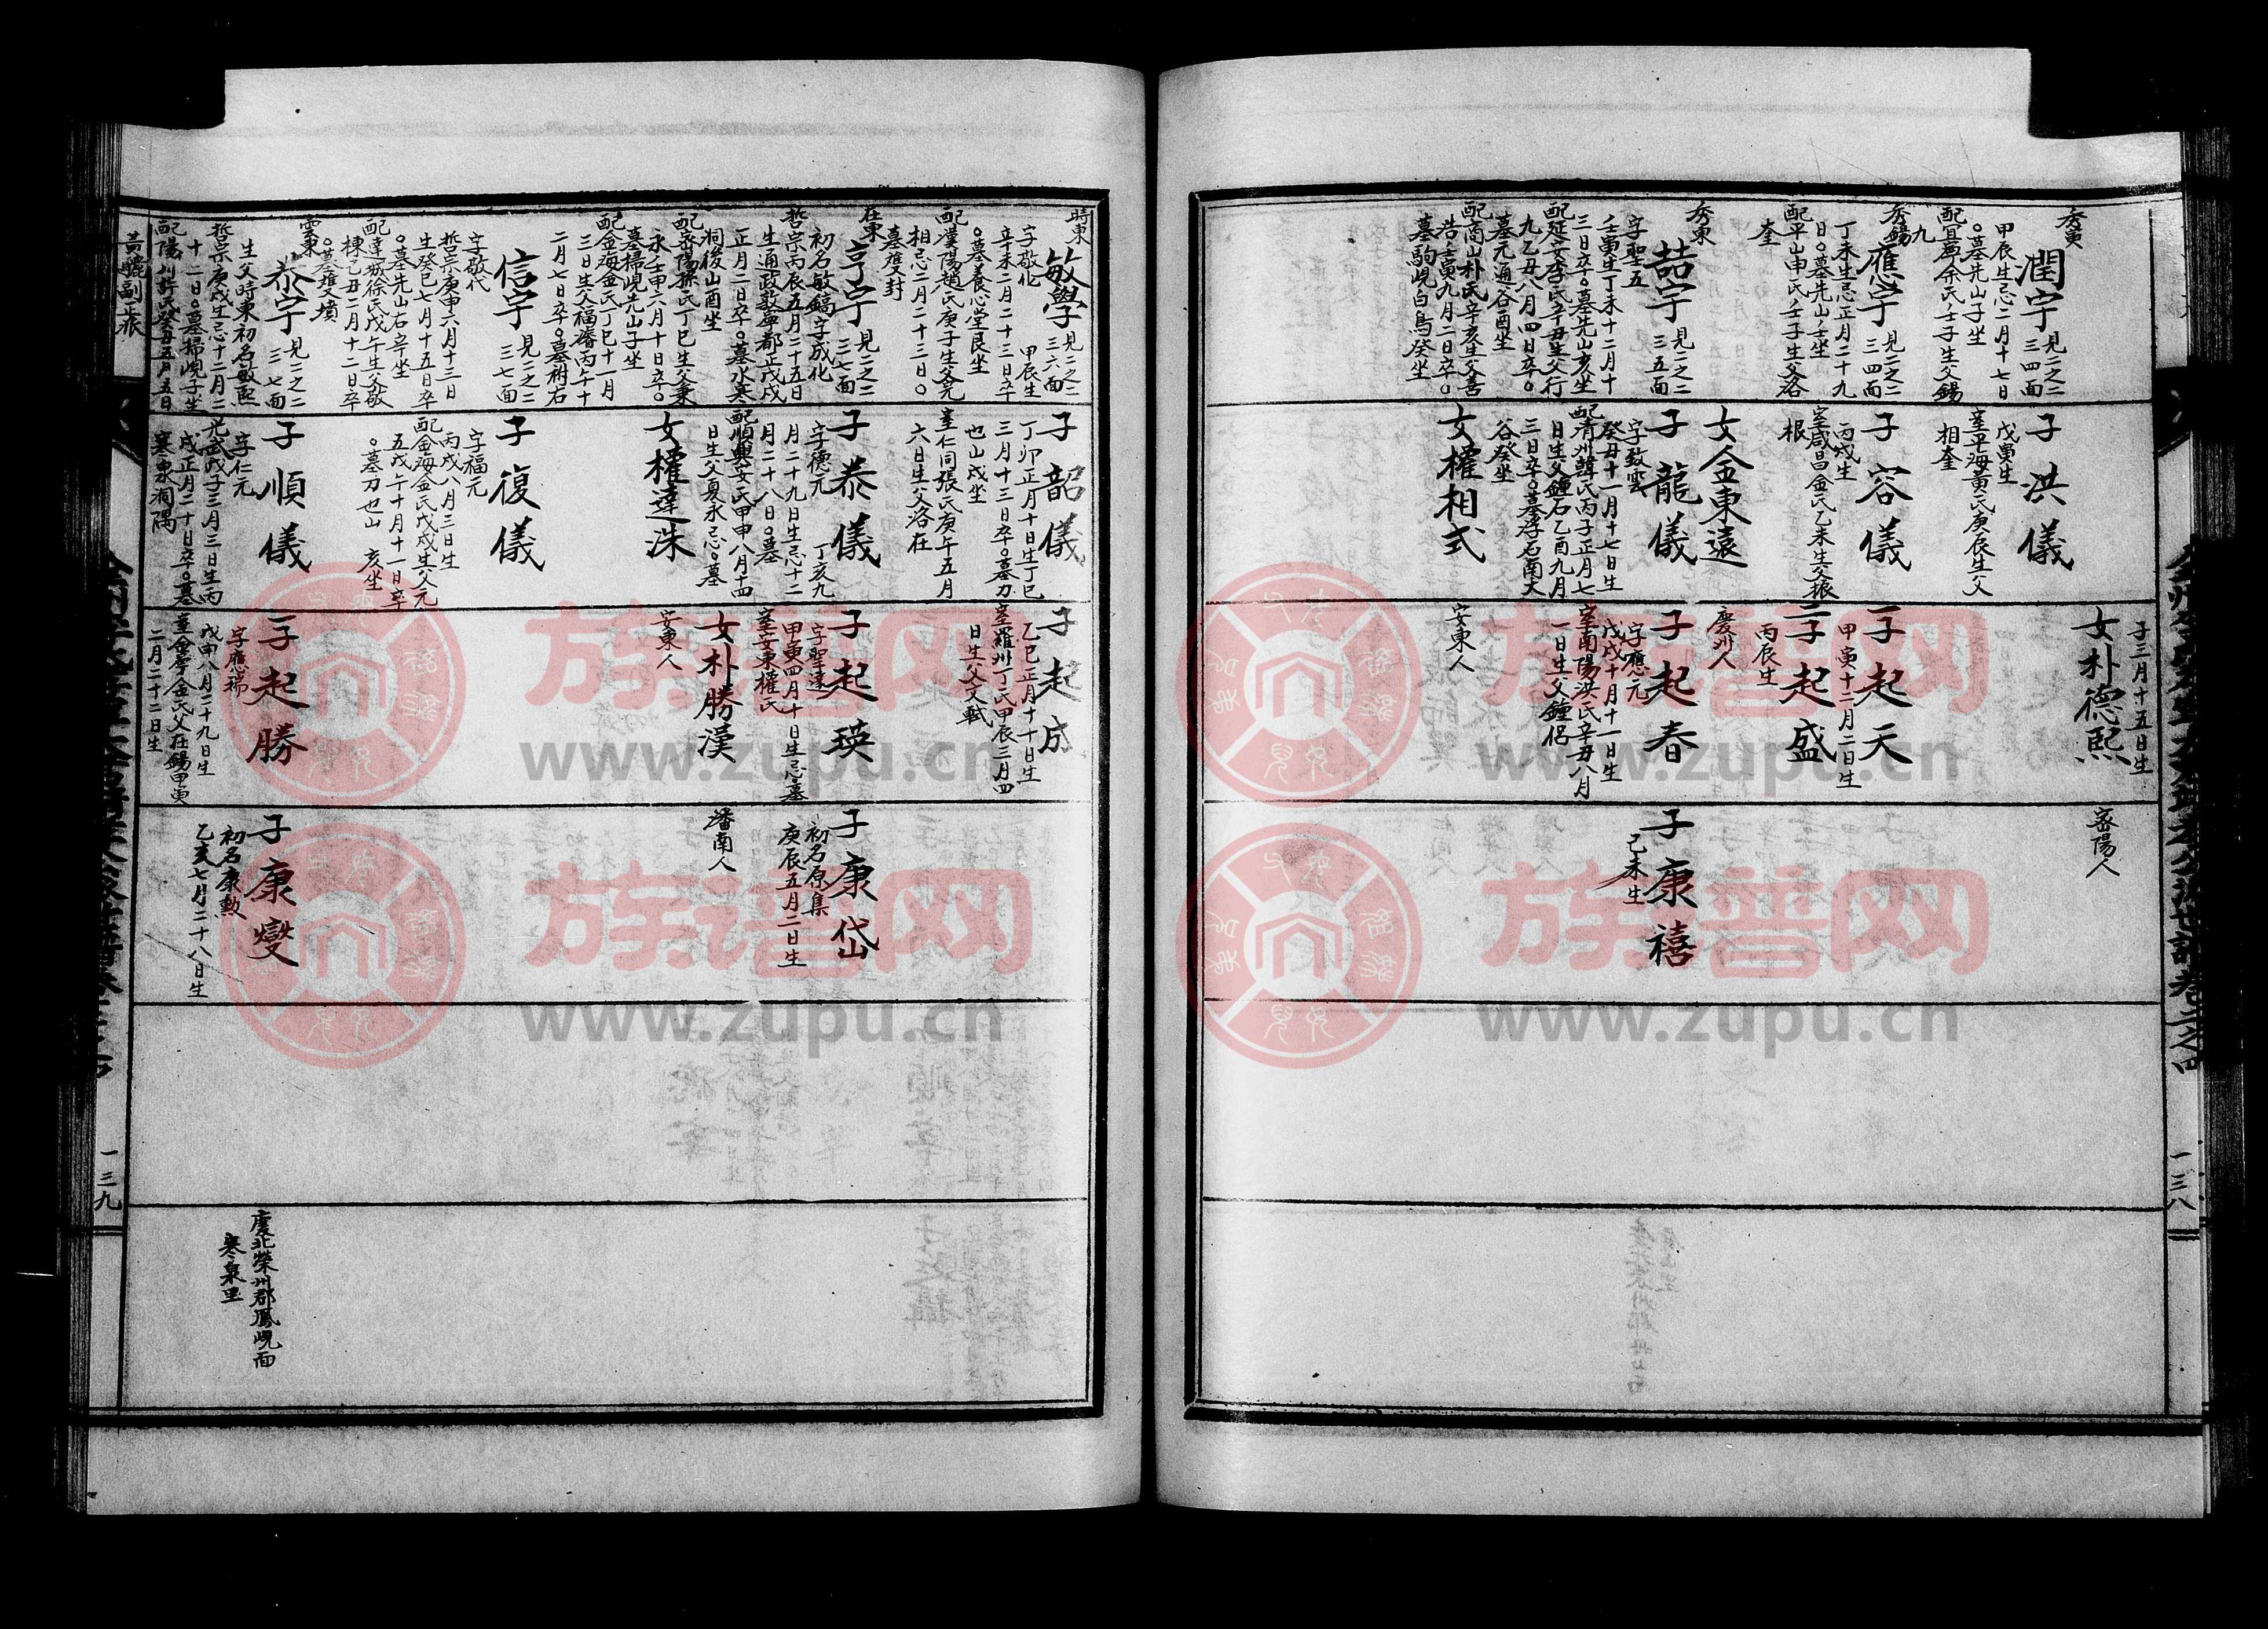 秀寅
潤宇
見二之二
三四面
甲辰生忌二月十七日
○墓先山子坐
配宜寧余氏壬子生父錫
九
秀錫
應宇
見二之二
三四面
丁未生忌正月二十九
日○墓先山壬坐
配平山申氏壬子生父洛
奎
秀東
喆宇
見二之二
三五面
字聖五
壬寅生丁未十二月十
三日卒○墓先山亥坐
配延安李氏辛丑生父行
九乙丑八月四日卒○
墓元通谷酉坐
配商山朴氏辛亥生父喜
浩壬寅九月二日卒○
墓駒峴白鳥癸坐
子洪儀
戊寅生
室平海黃氏庚辰生父
相奎
子容儀
丙戌生
室咸昌金氏乙未生父振
根
女金東遠
子龍儀
字致雲
癸丑十一月十七日生
配清州韓氏丙子正月七
日生父鍾石乙酉九月
三日卒○墓浮石南大
谷癸坐
女權相式
子三月十五日生
女朴德熙
子起天
甲寅十二月二日生
二子起盛
丙辰生
慶州人
子起春
字應元
戊戌十月十一日生
室南陽洪氏辛丑八月
一日生父鐘侶
安東人
密陽人
子康禧
己未生
一三八
時東
敏學
見二之二
三六面
字敬化
甲辰生
辛未二月二十三日卒
○墓養心堂艮坐
配漢陽趙氏庚子生父元
相忌二月二十三日○
墓雙封
在東
亨宇
見二之二
三七面
初名敏鎬字成化
哲宗丙辰五月二十五日
生通政敦寧都正戊戌
正月二日卒○墓水寒
洞後山酉坐
配密陽孫氏丁巳生父秉
永壬申六月十日卒○
墓掃峴先山子坐
配金海金氏丁巳十一月
三日生父福濬丙午十
二月七日卒○墓祔右
信宇
見二之二
三七面
字敬代
哲宗庚申六月十三日
生癸巳七月十五日卒
○墓先山右辛坐
配達城徐氏戊午生父敬
棟乙丑二月十二日卒
○墓雙墳
雲東
恭宇
見二之二
三七面
生父時東初名敏熙
哲宗庚戌生忌十二月二
十二日○墓掃峴子坐
配陽川許氏癸丑五月五日
子韶儀
丁卯正月十日生丁巳
三月十三日卒○墓刀
也山戌坐
室仁同張氏庚午五月
六日生父洛在
子泰儀
字德元
丁亥九
月二十九日生忌十二
月二十八日○墓
配順興安氏甲申八月十四
日生父夏永忌○墓
女權達洙
子復儀
字福元
丙戌八月三日生
配金海金氏戊戌生父元
五戊午十月十一日卒
○墓刀也山
亥坐
子順儀
字仁元
光武戊子三月三日生丙
戌正月二十日卒○墓
寒泉洞隅
子起成
乙巳正月十日生
室羅州丁氏甲辰三月四
日生父文軾
子起瑛
字聖達
甲寅四月十日生忌墓
室安東權氏
女朴勝漢
安東人
二子起勝
字應瑞
戊申八月二十九日生
室金寧金氏父在錫甲寅
二月二十二日生
子康岱
初名原集
庚辰五月二日生
潘南人
子康燮
初名康勲
乙亥七月二十八日生
慶北榮州郡鳳峴面
寒泉里
一三九
族谱网
www.zupu.cn
族谱网
www.zupu.cn
族谱网
www.zupu.cn
族谱网
www.zupu.cn